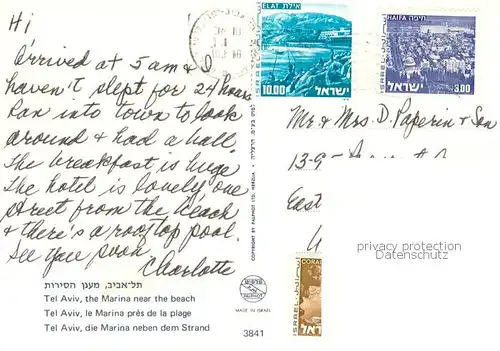 Hi
Arrived at 5 am & I
haven't slept for 24 hours
Ran into town to look
around & had a ball.
The breakfast is huge
The hotel is lovely one
street from the beach
& there's a rooftop pool.
See you soon
Charlotte
תל-אביב, מעגן הסירות
Tel Aviv, the Marina near the beach
Tel Aviv, le Marina près de la plage
Tel Aviv, die Marina neben dem Strand
COPYRIGHT BY PALPHOT LTD. HERZLIA
PALPHOT
MADE IN ISRAEL
3841
ELAT אילת
ISRAEL
10.00 ישראל
HAIFA חיפה
ISRAEL
ישראל 3.00
Mr. & Mrs. D. Paperin & Son
13-9
East
privacy protection
Datenschutz
ISRAEL